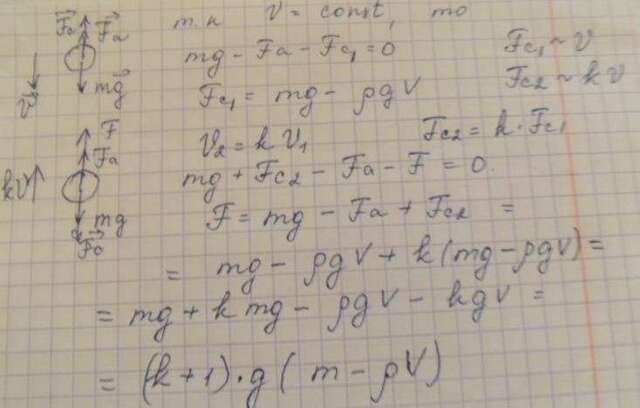 Fc Fa т.к V = const, то
mg - Fa - Fc₁ = 0 Fc₁ ~ v
mg Fc₁ = mg - ρgV Fc₂ ~ kv
v
F V₂ = kV₁ Fc₂ = k · Fc₁
Fa mg + Fc₂ - Fa - F = 0.
kv
mg F = mg - Fa + Fc₂ =
Fc
= mg - ρgV + k(mg - ρgV) =
= mg + kmg - ρgV - kgV =
= (k+1)·g(m - ρV)